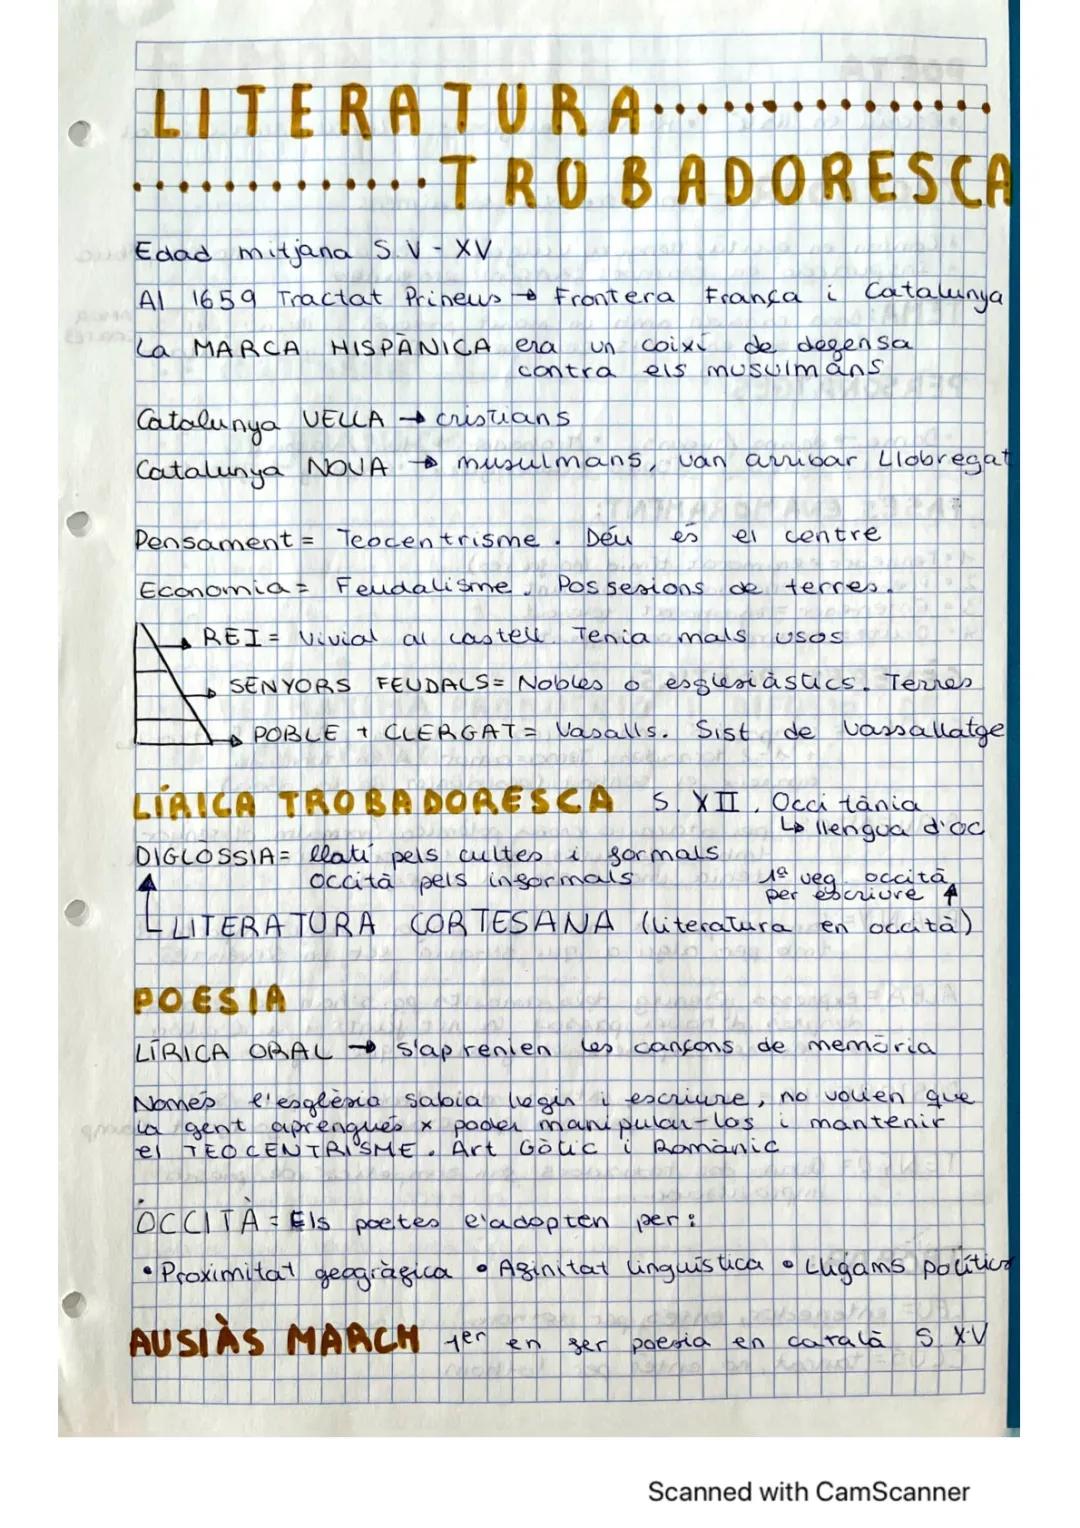 LITERATURA
TROBADORESCA
Edad mitjana S.V-XV
Al 1659 Tractat Prineus → Frontera França i Catalunya
La MARCA HISPÀNICA era un coixí de defensa
contra els musulmans
Catalunya VELLA → cristians
Catalunya NOVA → musulmans, van arribar Llobregat
Pensament = Teocentrisme. Déu és el centre
Economia = Feudalisme. Possesions de terres.
REI = Vivial al castell. Tenia mals usos
SENYORS FEUDALS = Nobles o esglesiàstics. Terres
POBLE + CLERGAT = Vasalls. Sist de vassallatge
LÍRICA TROBADORESCA S. XII. Occitània
↳ llengua d'oc
DIGLÒSSIA = llatí pels cultes i formals
occità pels informals
1ª veg. occità
per escriure
LITERATURA CORTESANA (literatura en occità)
POESIA
LÍRICA ORAL → s'aprenien les cançons de memòria
Només l'esglèsia sabia llegir i escriure, no volien que
la gent aprengués x poder manipular-los i mantenir
el TEOCENTRISME. Art Gòtic i Romànic
OCCITÀ = Els poetes l'adopten per:
• Proximitat geogràfica • Afinitat lingüística • Lligams polítics
AUSIÀS MARCH 1er en fer poesia en català S. XV
Scanned with CamScanner